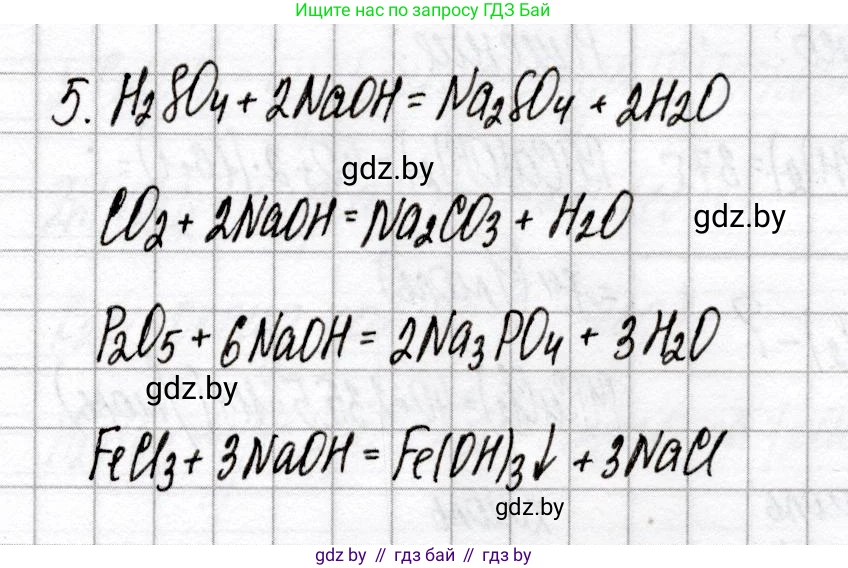 Ищите нас по запросу ГДЗ Бай
5. H₂SO₄ + 2NaOH = Na₂SO₄ + 2H₂O
gdz.by
CO₂ + 2NaOH = Na₂CO₃ + H₂O
gdz.by
P₂O₅ + 6NaOH = 2Na₃PO₄ + 3H₂O
gdz.by
FeCl₃ + 3NaOH = Fe(OH)₃↓ + 3NaCl
gdz.by
gdz.by // гдз бай // gdz.by